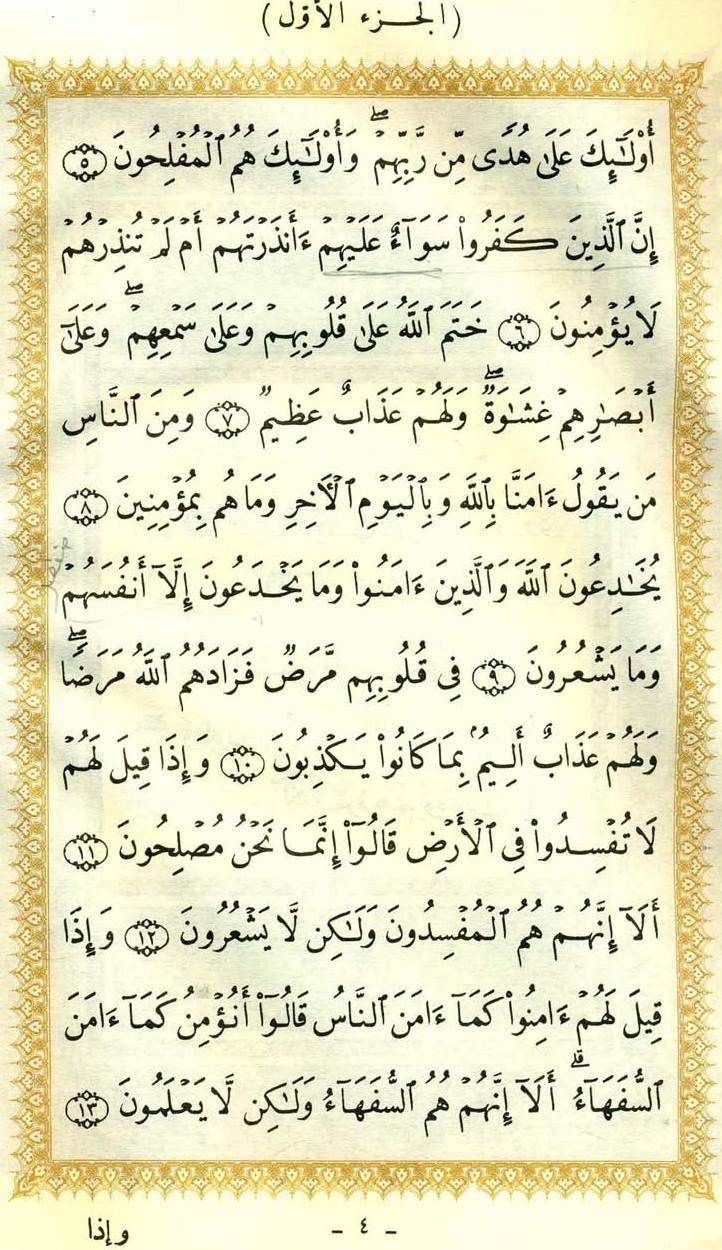 (الجزء الأول)
أُوْلَـٰٓئِكَ عَلَىٰ هُدًى مِّن رَّبِّهِمْ ۖ وَأُوْلَـٰٓئِكَ هُمُ ٱلْمُفْلِحُونَ ٥
إِنَّ ٱلَّذِينَ كَفَرُواْ سَوَآءٌ عَلَيْهِمْ ءَأَنذَرْتَهُمْ أَمْ لَمْ تُنذِرْهُمْ
لَا يُؤْمِنُونَ ٦ خَتَمَ ٱللَّهُ عَلَىٰ قُلُوبِهِمْ وَعَلَىٰ سَمْعِهِمْ ۖ وَعَلَىٰٓ
أَبْصَـٰرِهِمْ غِشَـٰوَةٌ ۖ وَلَهُمْ عَذَابٌ عَظِيمٌ ٧ وَمِنَ ٱلنَّاسِ
مَن يَقُولُ ءَامَنَّا بِٱللَّهِ وَبِٱلْيَوْمِ ٱلْأَخِرِ وَمَا هُم بِمُؤْمِنِينَ ٨
يُخَـٰدِعُونَ ٱللَّهَ وَٱلَّذِينَ ءَامَنُواْ وَمَا يَخْدَعُونَ إِلَّآ أَنفُسَهُمْ
وَمَا يَشْعُرُونَ ٩ فِى قُلُوبِهِم مَّرَضٌ فَزَادَهُمُ ٱللَّهُ مَرَضًا ۖ
وَلَهُمْ عَذَابٌ أَلِيمٌۢ بِمَا كَانُواْ يَكْذِبُونَ ١٠ وَإِذَا قِيلَ لَهُمْ
لَا تُفْسِدُواْ فِى ٱلْأَرْضِ قَالُوٓاْ إِنَّمَا نَحْنُ مُصْلِحُونَ ١١
أَلَآ إِنَّهُمْ هُمُ ٱلْمُفْسِدُونَ وَلَـٰكِن لَّا يَشْعُرُونَ ١٢ وَإِذَا
قِيلَ لَهُمْ ءَامِنُواْ كَمَآ ءَامَنَ ٱلنَّاسُ قَالُوٓاْ أَنُؤْمِنُ كَمَآ ءَامَنَ
ٱلسُّفَهَآءُ ۗ أَلَآ إِنَّهُمْ هُمُ ٱلسُّفَهَآءُ وَلَـٰكِن لَّا يَعْلَمُونَ ١٣
- ٤ -
وإذا